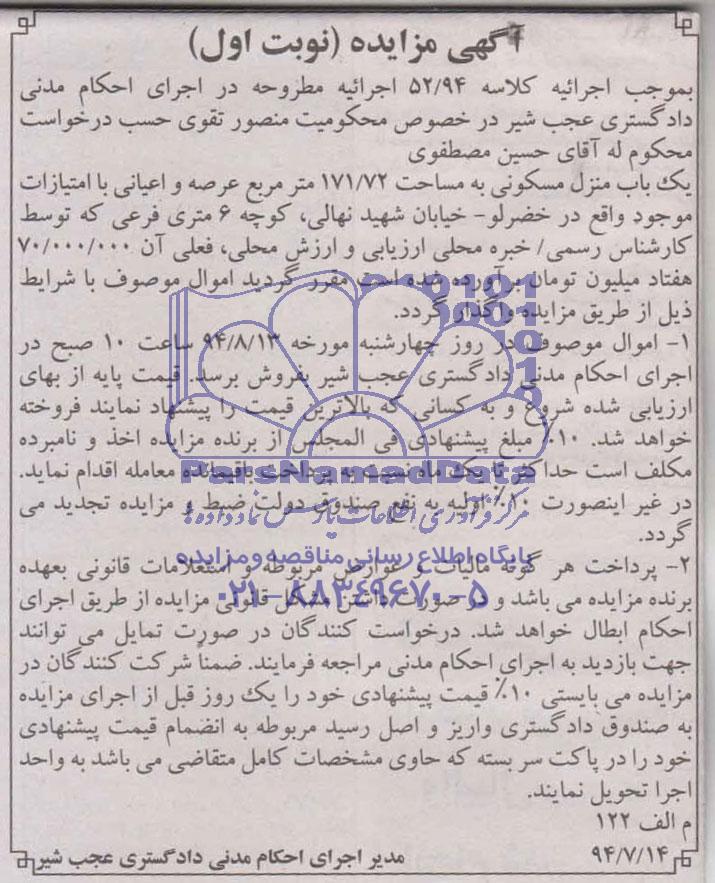 آگهی مزایده (نوبت اول)
بموجب اجرائیه کلاسه ۵۲/۹۴ اجرائیه مطروحه در اجرای احکام مدنی
دادگستری عجب شیر در خصوص محکومیت منصور تقوی حسب درخواست
محکوم له آقای حسین مصطفوی
یک باب منزل مسکونی به مساحت ۱۷۱/۷۲ متر مربع عرصه و اعیانی با امتیازات
موجود واقع در خضرلو- خیابان شهید نهالی، کوچه ۶ متری فرعی که توسط
کارشناس رسمی/ خبره محلی ارزیابی و ارزش محلی، فعلی آن ۷۰/۰۰۰/۰۰۰
هفتاد میلیون تومان برآورده شده است مقرر گردید اموال موصوف با شرایط
ذیل از طریق مزایده واگذار گردد.
۱- اموال موصوف در روز چهارشنبه مورخه ۹۴/۸/۱۳ ساعت ۱۰ صبح در
اجرای احکام مدنی دادگستری عجب شیر بفروش برسد. قیمت پایه از بهای
ارزیابی شده شروع و به کسانی که بالاترین قیمت را پیشنهاد نمایند فروخته
خواهد شد. ۱۰٪ مبلغ پیشنهادی فی المجلس از برنده مزایده اخذ و نامبرده
مکلف است حداکثر تا یک ماه نسبت به پرداخت باقیمانده معامله اقدام نماید.
در غیر اینصورت ۱۰٪ اولیه به نفع صندوق دولت ضبط و مزایده تجدید می
گردد.
۲- پرداخت هر گونه مالیات و عوارض مربوطه و استعلامات قانونی بعهده
برنده مزایده می باشد و در صورت داشتن مشکل قانونی مزایده از طریق اجرای
احکام ابطال خواهد شد. درخواست کنندگان در صورت تمایل می توانند
جهت بازدید به اجرای احکام مدنی مراجعه فرمایند. ضمناً شرکت کنندگان در
مزایده می بایستی ۱۰٪ قیمت پیشنهادی خود را یک روز قبل از اجرای مزایده
به صندوق دادگستری واریز و اصل رسید مربوطه به انضمام قیمت پیشنهادی
خود را در پاکت سر بسته که حاوی مشخصات کامل متقاضی می باشد به واحد
اجرا تحویل نمایند.
م الف ۱۲۲
۹۴/۷/۱۴ مدیر اجرای احکام مدنی دادگستری عجب شیر
ParsNamadData
مرکز فرآوری اطلاعات پارس نماد داده ها
پایگاه اطلاع رسانی مناقصه و مزایده
۰۲۱-۸۸۳۴۹۶۷۰-۵